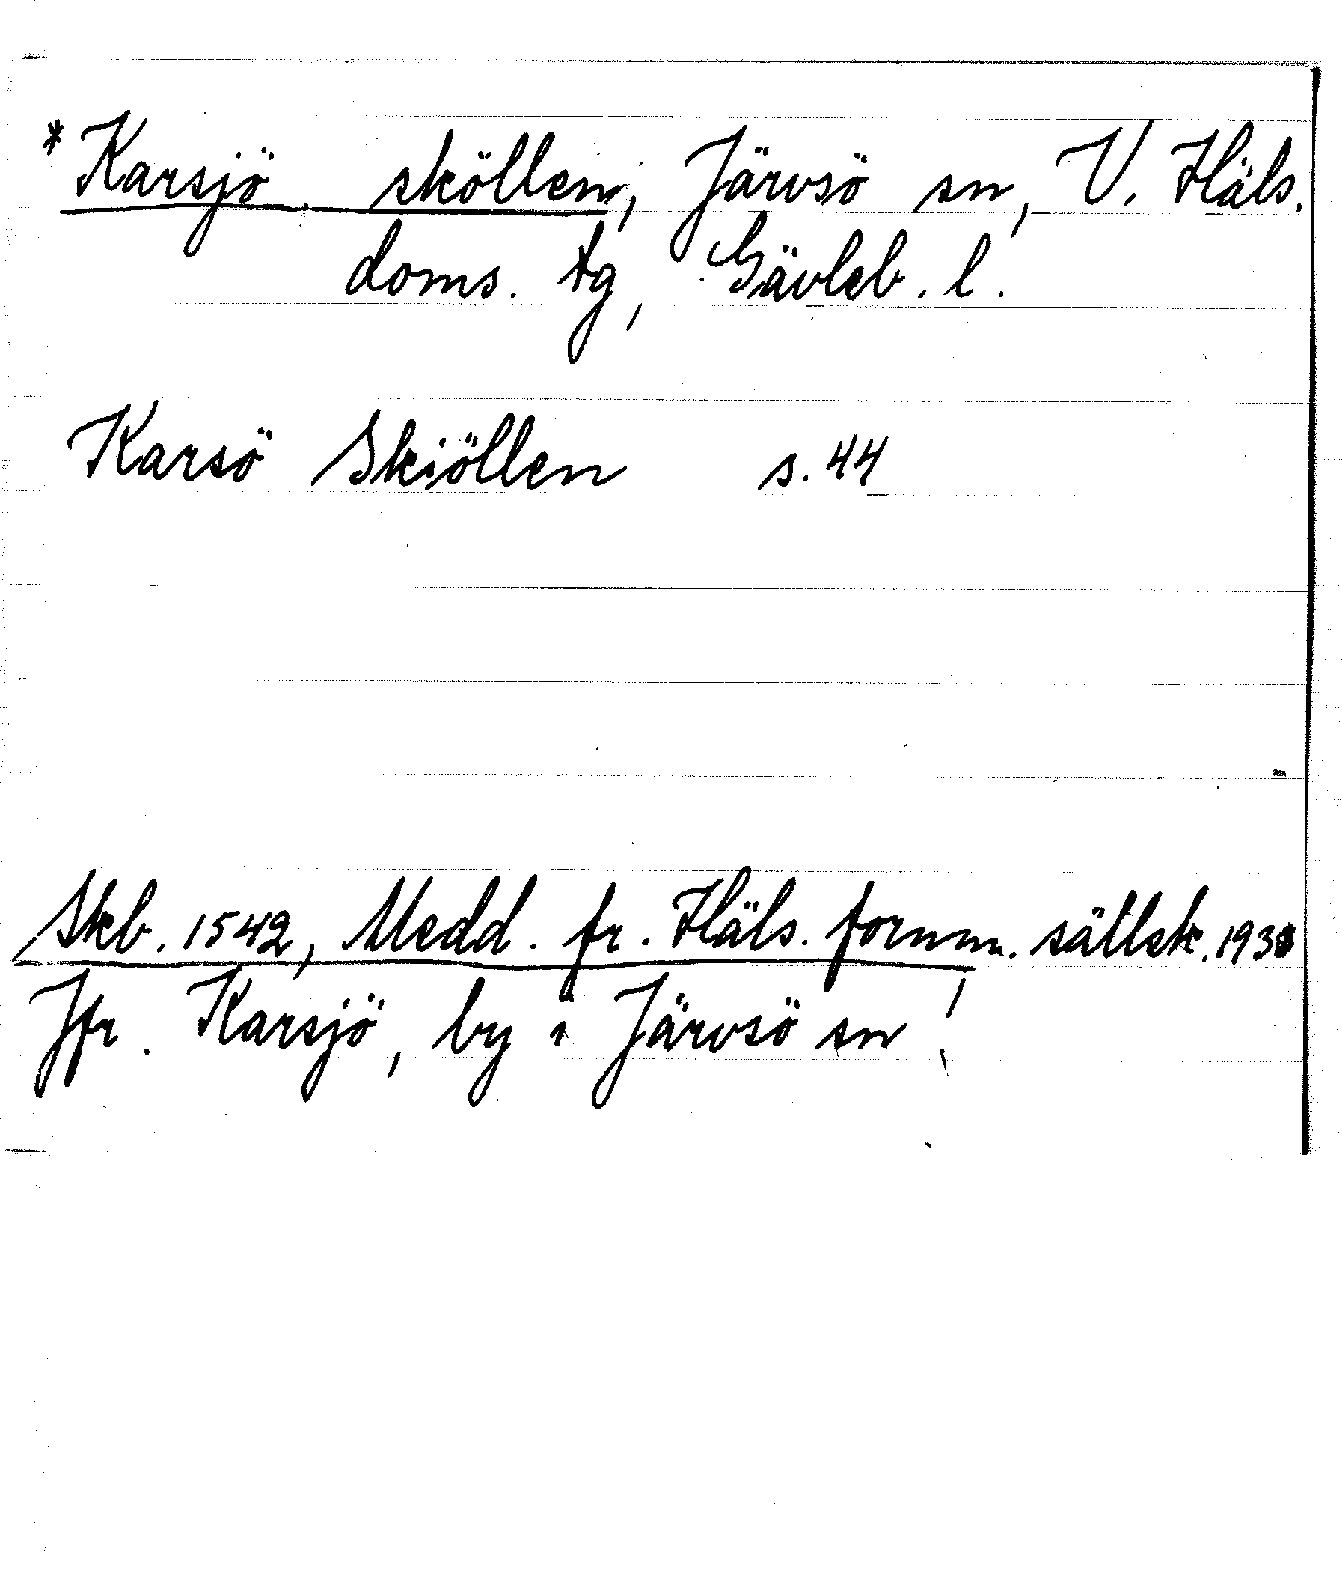 *Karsjö sköllen, Järvsö sn, V. Häls.
doms. tg, Gävleb. l.
Karsö Skiöllen s. 44
Skb. 1542, Medd. fr. Häls. fornm. sällsk.
Jfr. Karsjö, by i Järvsö sn!